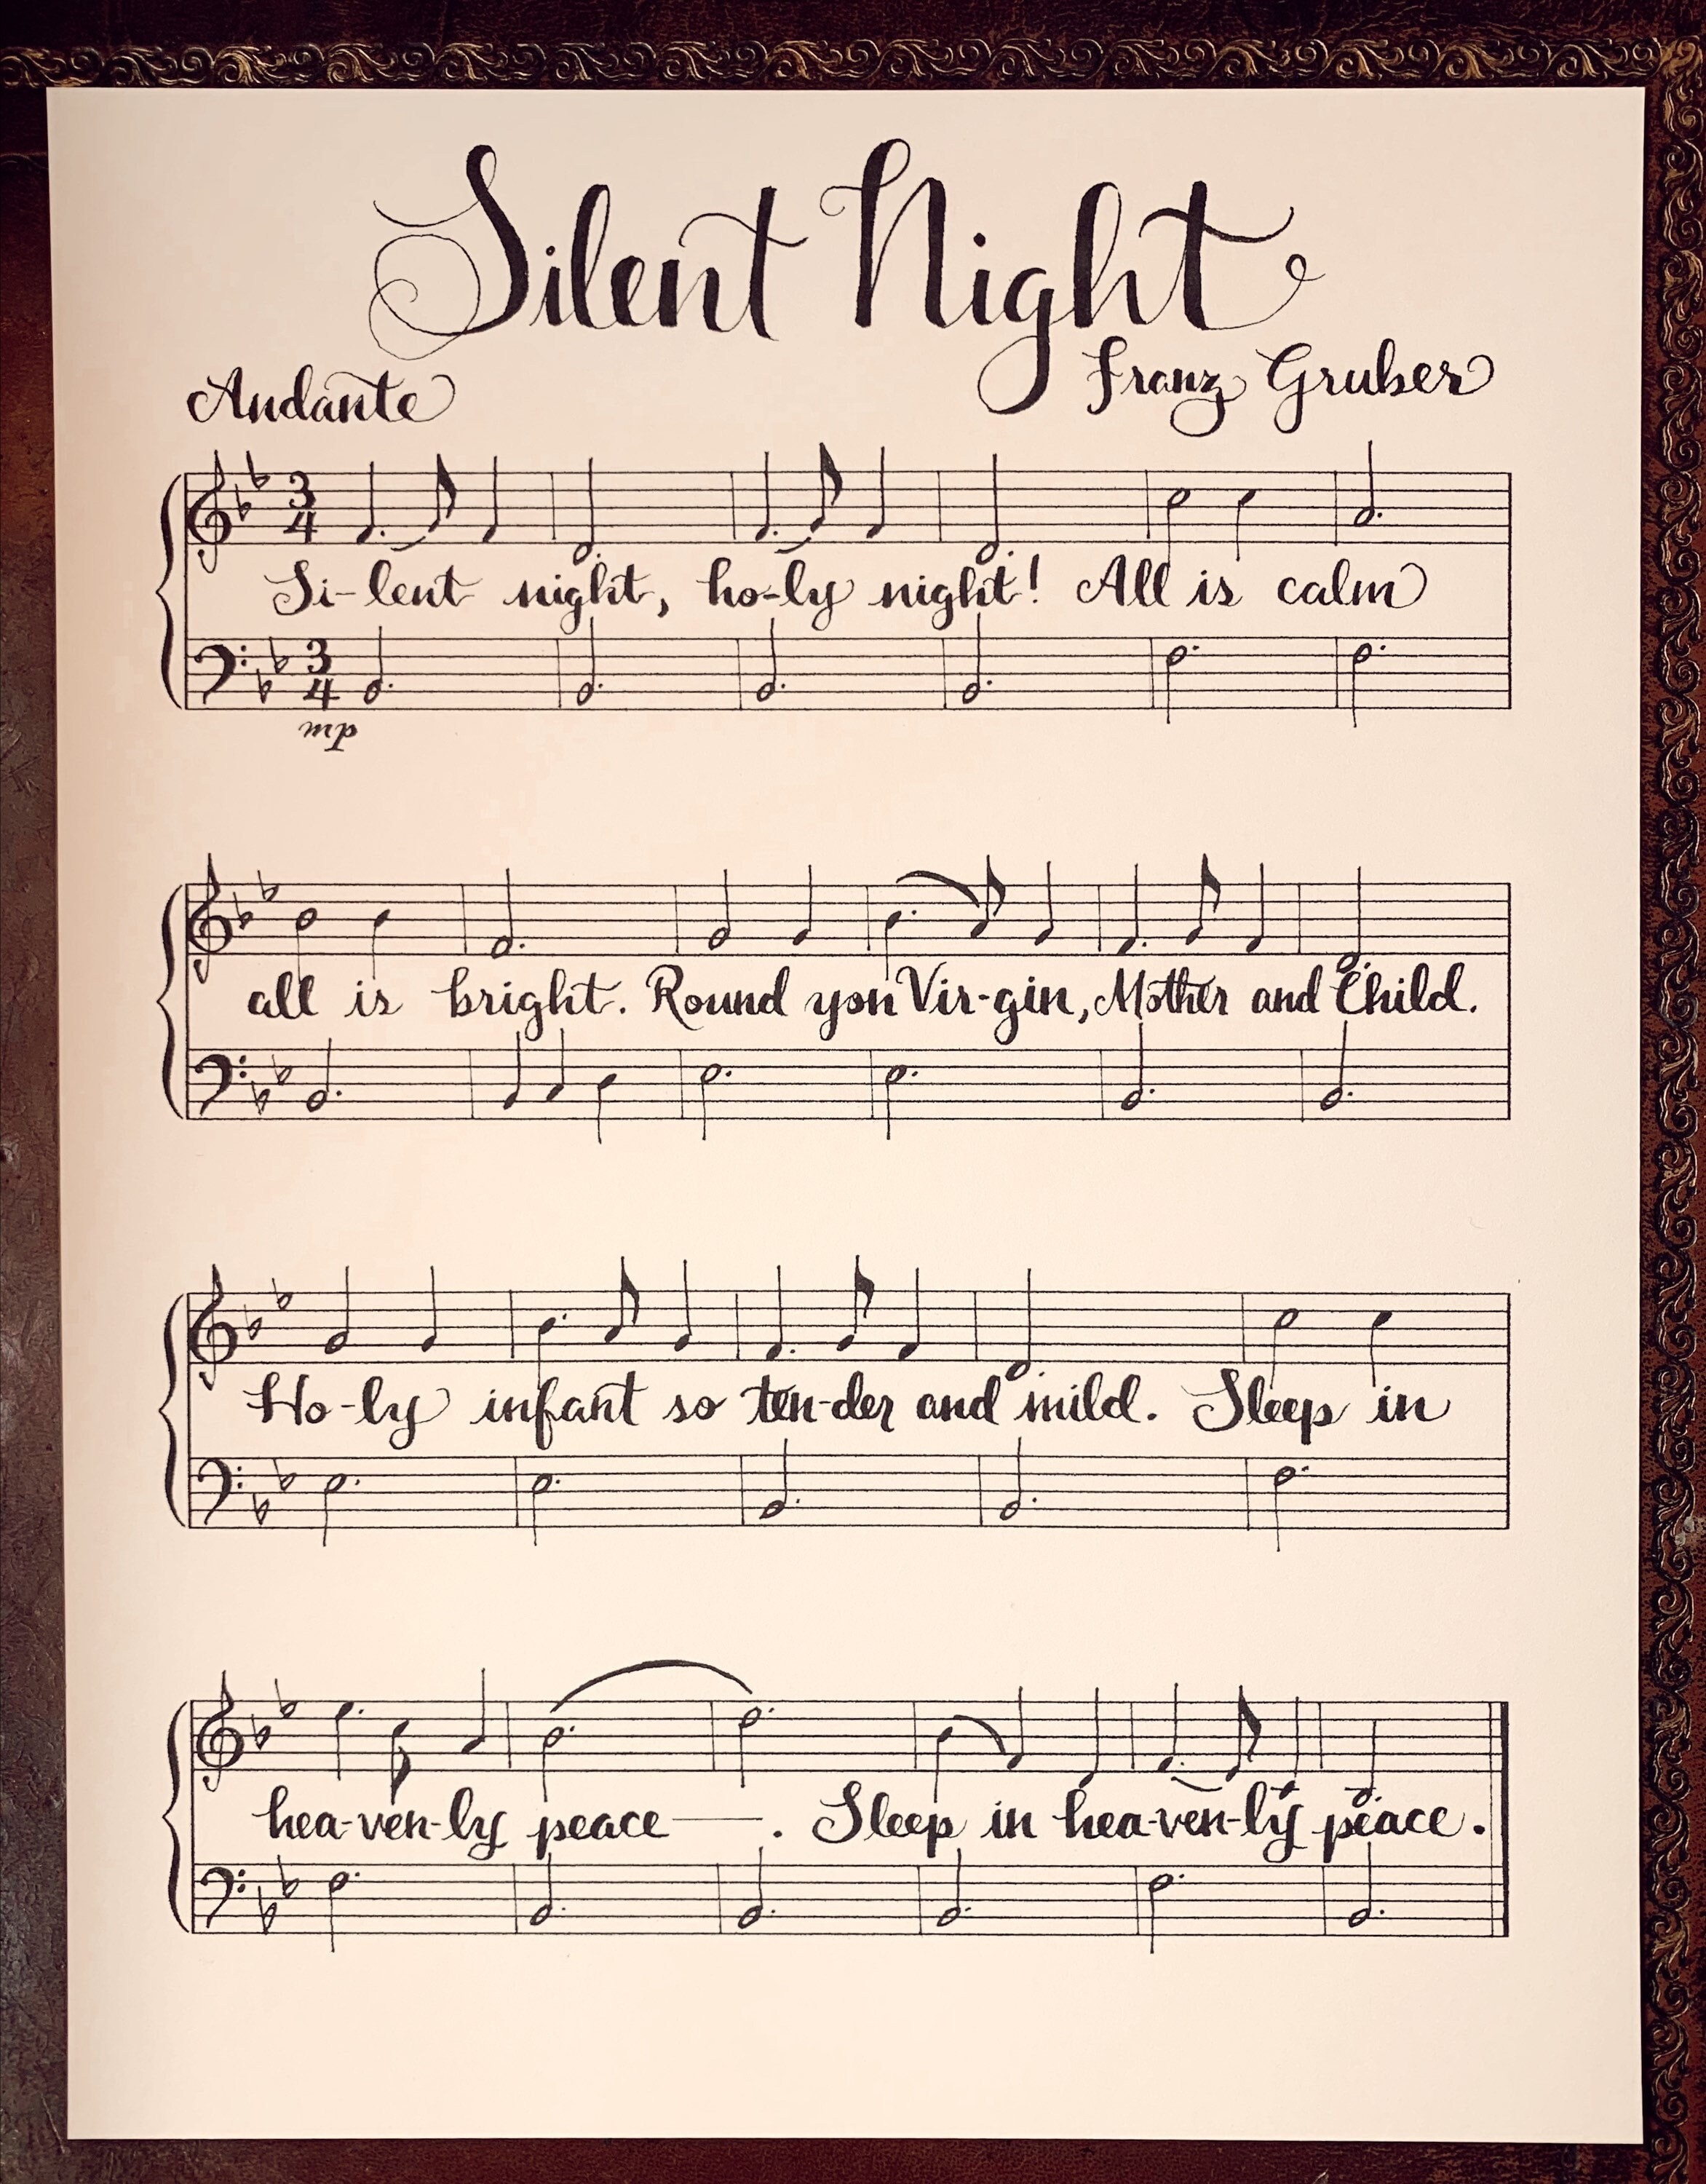 Silent Night
Andante Franz Gruber
3 4
Si-lent night, ho-ly night! All is calm
3 4
mp
all is bright. Round yon Vir-gin, Mother and Child.
Ho-ly infant so ten-der and mild. Sleep in
hea-ven-ly peace—. Sleep in hea-ven-ly peace.